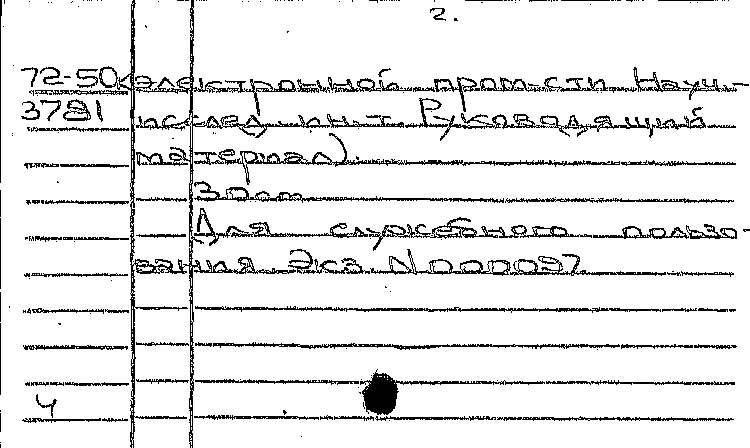 2.
72-50 электронной пром-сти Науч.-
3781 исслед. ин-т. Руководящий
материал).
Для служебного пользо-
вания. Экз. N 000097
Ч